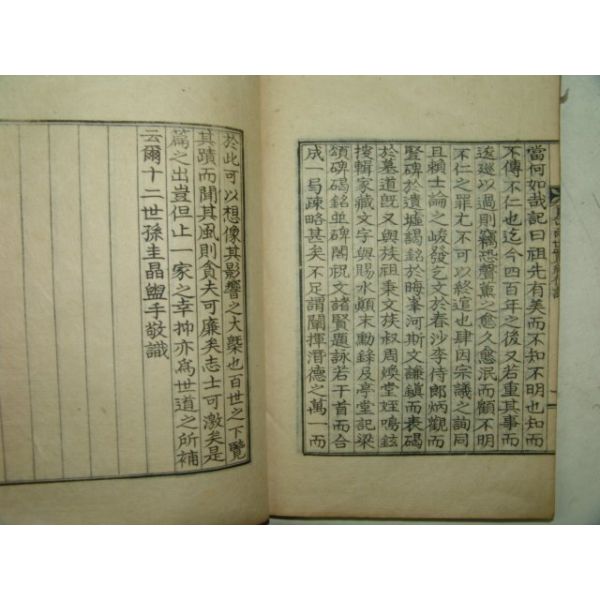 當何如哉記曰祖先有美而不知不明也知而
不傳不仁也迄今四百年之後又若重其事而
逡巡以過則竊恐馨薰之愈久愈泯而顧不明
不仁之罪尤不可以終逭也肆因宗議之詢同
且賴士論之峻發乞文於春沙李侍郎炳觀而
竪碑於遺墟謁銘於晦峯河斯文謙鎭而表碣
於墓道旣又與族祖秉文族叔周煥堂姪鳴鉉
搜輯家藏文字與賜水顚末勳錄及亭堂記梁
頌碑碣銘並碑閣祝文諸賢題詠若干首而合
成一局疎略甚矣不足謂闡揮潛德之萬一而
於此可以想像其影響之大槩也百世之下覽
其蹟而聞其風則貪夫可廉矣志士可激矣是
篇之出豈但止一家之幸抑亦爲世道之所補
云爾十二世孫圭晶盥手敬識